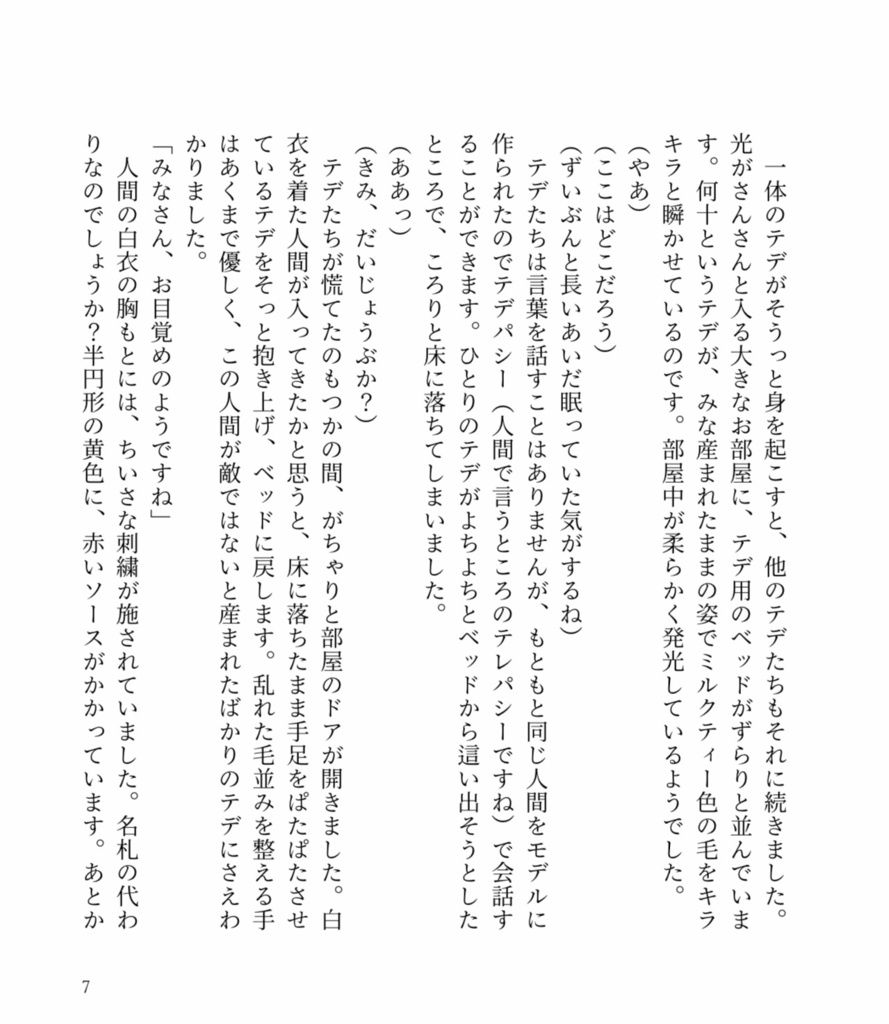 一体のテデがそうっと身を起こすと、他のテデたちもそれに続きました。
光がさんさんと入る大きなお部屋に、テデ用のベッドがずらりと並んでいま
す。何十というテデが、みな産まれたままの姿でミルクティー色の毛をキラ
キラと瞬かせているのです。部屋中が柔らかく発光しているようでした。
（やあ）
（ここはどこだろう）
（ずいぶんと長いあいだ眠っていた気がするね）
　テデたちは言葉を話すことはありませんが、もともと同じ人間をモデルに
作られたのでテデパシー（人間で言うところのテレパシーですね）で会話す
ることができます。ひとりのテデがよちよちとベッドから這い出そうとした
ところで、ころりと床に落ちてしまいました。
（ああっ）
（きみ、だいじょうぶか？）
　テデたちが慌てたのもつかの間、がちゃりと部屋のドアが開きました。白
衣を着た人間が入ってきたかと思うと、床に落ちたまま手足をぱたぱたさせ
ているテデをそっと抱き上げ、ベッドに戻します。乱れた毛並みを整える手
はあくまで優しく、この人間が敵ではないと産まれたばかりのテデにさえわ
かりました。
「みなさん、お目覚めのようですね」
　人間の白衣の胸もとには、ちいさな刺繍が施されていました。名札の代わ
りなのでしょうか？半円形の黄色に、赤いソースがかかっています。あとか
7